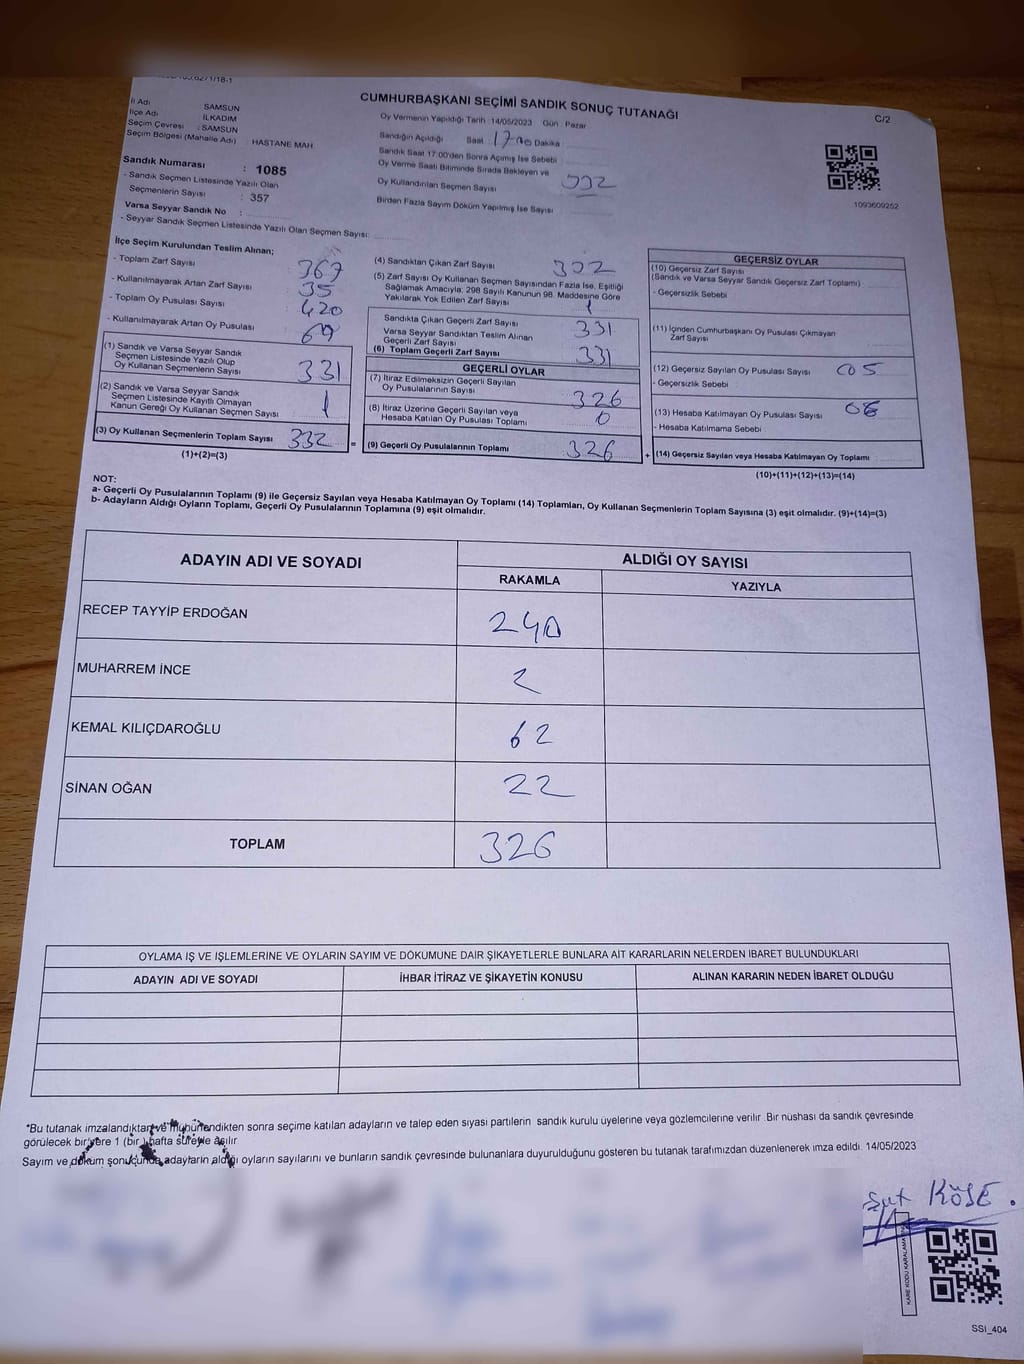 CUMHURBAŞKANI SEÇİMİ SANDIK SONUÇ TUTANAĞI
C/2
İl Adı : SAMSUN
İlçe Adı : İLKADIM
Seçim Çevresi : SAMSUN
Seçim Bölgesi (Mahalle Adı) HASTANE MAH
Sandık Numarası : 1085
- Sandık Seçmen Listesinde Yazılı Olan
Seçmenlerin Sayısı : 357
Varsa Seyyar Sandık No :
- Seyyar Sandık Seçmen Listesinde Yazılı Olan Seçmen Sayısı:
Oy Vermenin Yapıldığı Tarih :14/05/2023 Gün : Pazar
Sandığın Açıldığı Saat 17 00 Dakika
Sandık Saat 17:00'den Sonra Açımış İse Sebebi
Oy Verme Saati Bitiminde Sırada Bekleyen ve
Oy Kullandırılan Seçmen Sayısı 332
Birden Fazla Sayım Döküm Yapılmış İse Sayısı
1093609252
İlçe Seçim Kurulundan Teslim Alınan;
- Toplam Zarf Sayısı 367
- Kullanılmayarak Artan Zarf Sayısı 35
- Toplam Oy Pusulası Sayısı 420
- Kullanılmayarak Artan Oy Pusulası
(1) Sandık ve Varsa Seyyar Sandık
Seçmen Listesinde Yazılı Olup
Oy Kullanan Seçmenlerin Sayısı 331
(2) Sandık ve Varsa Seyyar Sandık
Seçmen Listesinde Kayıtlı Olmayan
Kanun Gereği Oy Kullanan Seçmen Sayısı 1
(3) Oy Kullanan Seçmenlerin Toplam Sayısı 332 =
(1)+(2)=(3)
(4) Sandıktan Çıkan Zarf Sayısı 332
(5) Zarf Sayısı Oy Kullanan Seçmen Sayısından Fazla İse, Eşitliği
Sağlamak Amacıyla, 298 Sayılı Kanunun 98. Maddesine Göre
Yakılarak Yok Edilen Zarf Sayısı 1
Sandıkta Çıkan Geçerli Zarf Sayısı 331
Varsa Seyyar Sandıktan Teslim Alınan
Geçerli Zarf Sayısı
(6) Toplam Geçerli Zarf Sayısı 331
GEÇERLİ OYLAR
(7) İtiraz Edilmeksizin Geçerli Sayılan
Oy Pusulalarının Sayısı 326
(8) İtiraz Üzerine Geçerli Sayılan veya
Hesaba Katılan Oy Pusulası Toplamı 0
(9) Geçerli Oy Pusulalarının Toplamı 326 +
GEÇERSİZ OYLAR
(10) Geçersiz Zarf Sayısı
(Sandık ve Varsa Seyyar Sandık Geçersiz Zarf Toplamı)
- Geçersizlik Sebebi
(11) İçinden Cumhurbaşkanı Oy Pusulası Çıkmayan
Zarf Sayısı
(12) Geçersiz Sayılan Oy Pusulası Sayısı 05
- Geçersizlik Sebebi
(13) Hesaba Katılmayan Oy Pusulası Sayısı
- Hesaba Katılmama Sebebi
(14) Geçersiz Sayılan veya Hesaba Katılmayan Oy Toplamı
(10)+(11)+(12)+(13)=(14)
NOT:
a- Geçerli Oy Pusulalarının Toplamı (9) ile Geçersiz Sayılan veya Hesaba Katılmayan Oy Toplamı (14) Toplamları, Oy Kullanan Seçmenlerin Toplam Sayısına (3) eşit olmalıdır. (9)+(14)=(3)
b- Adayların Aldığı Oyların Toplamı, Geçerli Oy Pusulalarının Toplamına (9) eşit olmalıdır.
ADAYIN ADI VE SOYADI ALDIĞI OY SAYISI
RAKAMLA YAZIYLA
RECEP TAYYİP ERDOĞAN 240
MUHARREM İNCE 2
KEMAL KILIÇDAROĞLU 62
SİNAN OĞAN 22
TOPLAM 326
OYLAMA İŞ VE İŞLEMLERİNE VE OYLARIN SAYIM VE DÖKÜMÜNE DAİR ŞİKAYETLERLE BUNLARA AİT KARARLARIN NELERDEN İBARET BULUNDUKLARI
ADAYIN ADI VE SOYADI İHBAR İTİRAZ VE ŞİKAYETİN KONUSU ALINAN KARARIN NEDEN İBARET OLDUĞU
*Bu tutanak imzalandıktan ve mühürlendikten sonra seçime katılan adayların ve talep eden siyasi partilerin sandık kurulu üyelerine veya gözlemcilerine verilir. Bir nüshası da sandık çevresinde
görülecek bir yere 1 (bir) hafta süreyle asılır
Sayım ve döküm sonucunda adayların aldığı oyların sayılarını ve bunların sandık çevresinde bulunanlara duyurulduğunu gösteren bu tutanak tarafımızdan düzenlenerek imza edildi. 14/05/2023
KÖSE
KARE KODU KARALAMAYINIZ
SSI_404